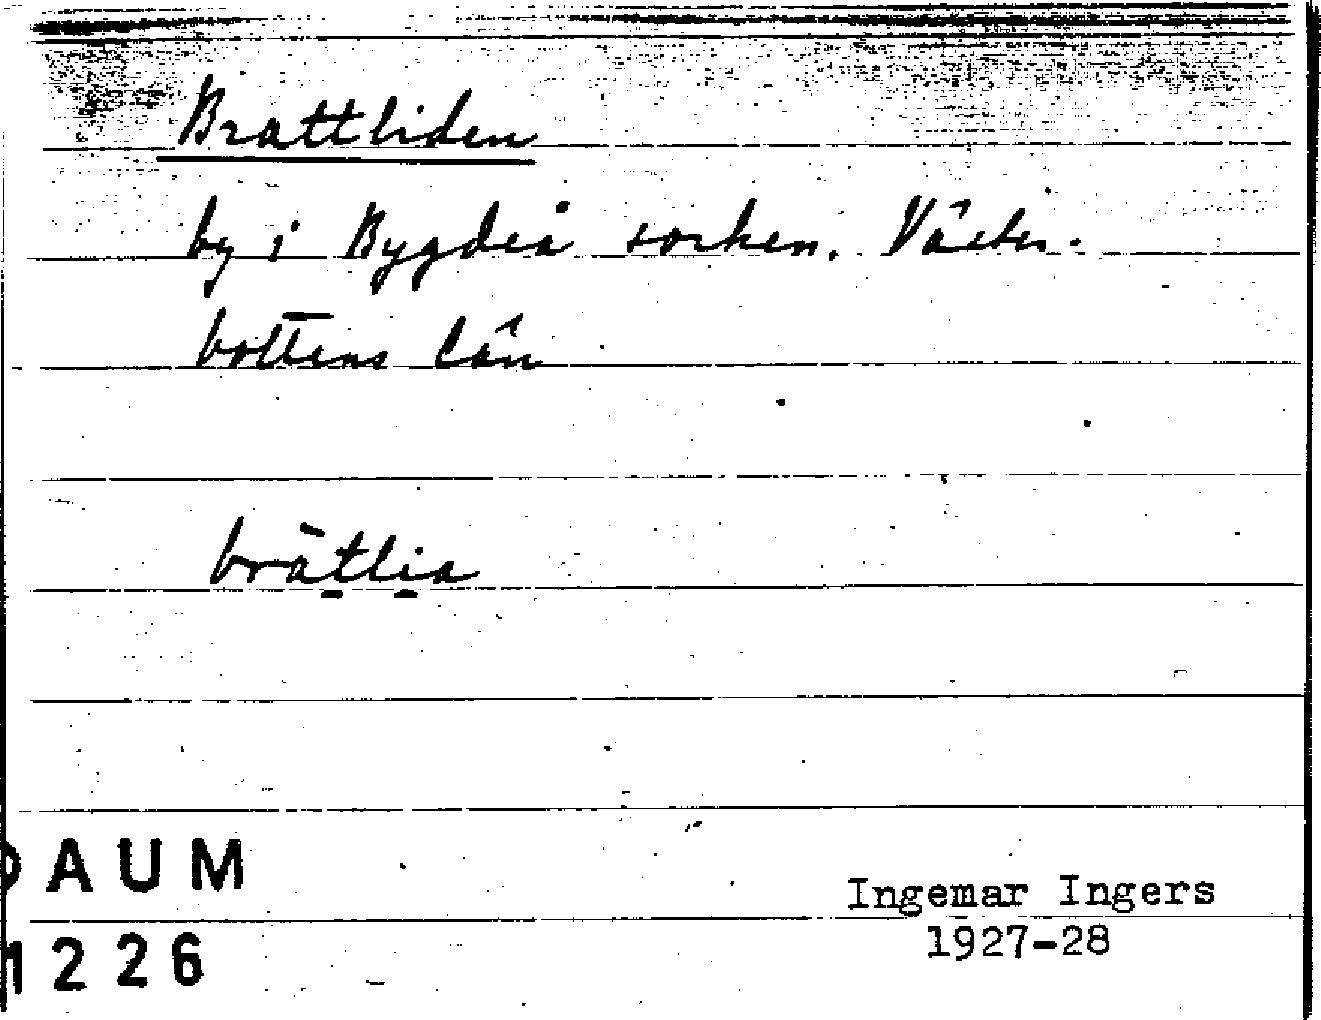 Brattliden
by i Bygdeå socken. Väster-
bottens län
bràt̠li̠a
DAUM
Ingemar Ingers
1226
1927-28